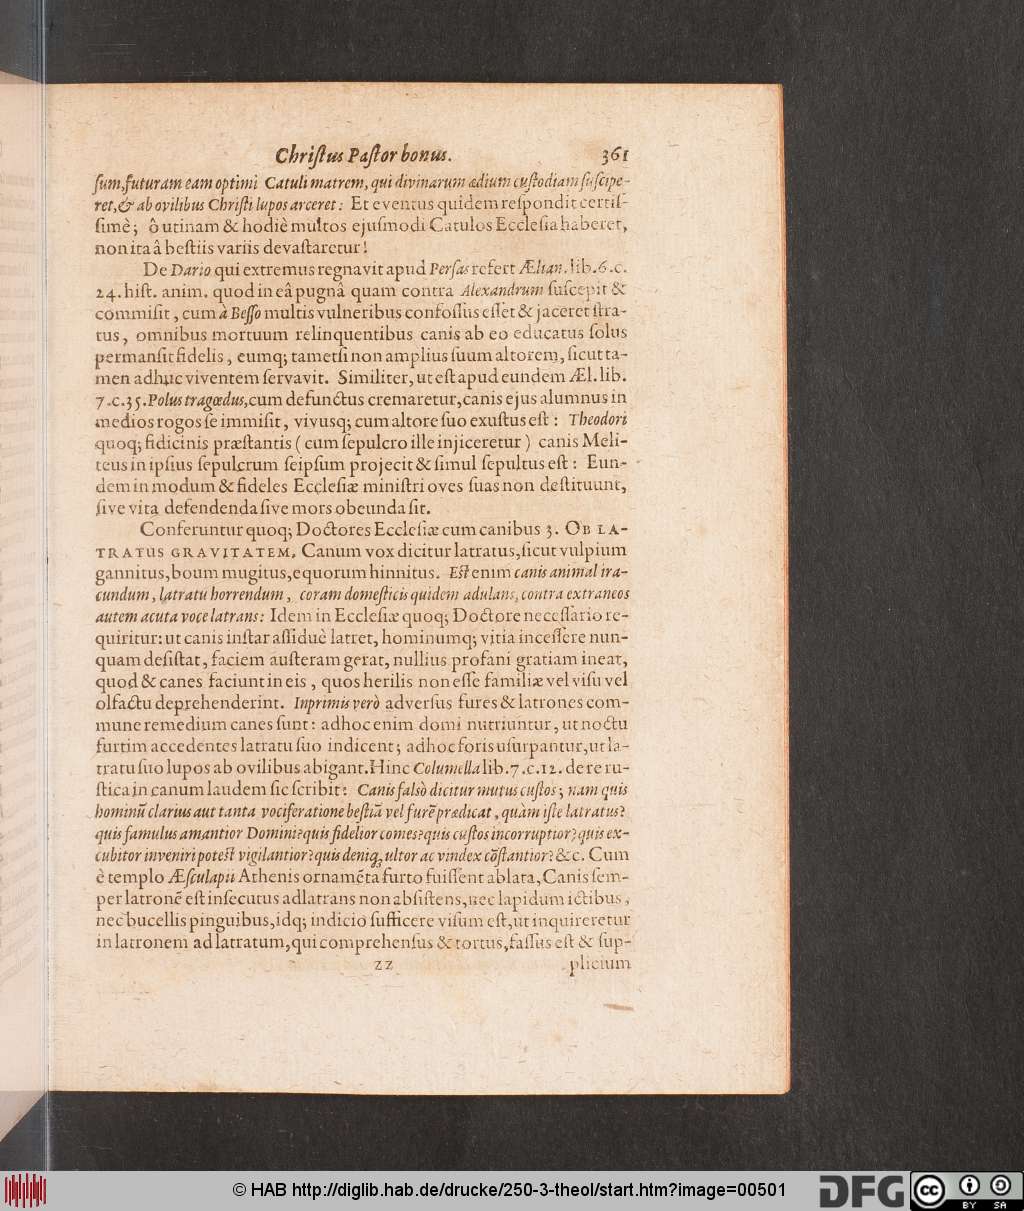 Christus Pastor bonus. 361
sum, futuram eam optimi Catuli matrem, qui divinarum ædium custodiam suscipe-
ret, & ab ovilibus Christi lupos arceret: Et eventus quidem respondit certis-
simè; ô utinam & hodiè multos ejusmodi Catulos Ecclesia haberet,
non ita â bestiis variis devastaretur!
De Dario qui extremus regnavit apud Persas refert Ælian. lib. 6. c.
24. hist. anim. quod in eâ pugnâ quam contra Alexandrum suscepit &
commisit, cum à Besso multis vulneribus confossus esset & jaceret stra-
tus, omnibus mortuum relinquentibus canis ab eo educatus solus
permansit fidelis, eumq; tametsi non amplius suum altorem, sicut ta-
men adhuc viventem servavit. Similiter, ut est apud eundem Æl. lib.
7. c. 35. Polus tragœdus, cum defunctus cremaretur, canis ejus alumnus in
medios rogos se immisit, vivusq; cum altore suo exustus est: Theodori
quoq; fidicinis præstantis ( cum sepulcro ille injiceretur ) canis Meli-
teus in ipsius sepulcrum seipsum projecit & simul sepultus est: Eun-
dem in modum & fideles Ecclesiæ ministri oves suas non destituunt,
sive vita defendenda sive mors obeunda sit.
Conferuntur quoq; Doctores Ecclesiæ cum canibus 3. OB LA-
TRATUS GRAVITATEM. Canum vox dicitur latratus, sicut vulpium
gannitus, boum mugitus, equorum hinnitus. Est enim canis animal ira-
cundum, latratu horrendum, coram domesticis quidem adulans, contra extraneos
autem acuta voce latrans: Idem in Ecclesiæ quoq; Doctore necessario re-
quiritur: ut canis instar assiduè latret, hominumq; vitia incessere nun-
quam desistat, faciem austeram gerat, nullius profani gratiam ineat,
quod & canes faciunt in eis, quos herilis non esse familiæ vel visu vel
olfactu deprehenderint. Inprimis verò adversus fures & latrones com-
mune remedium canes sunt: ad hoc enim domi nutriuntur, ut noctu
furtim accedentes latratu suo indicent; ad hoc foris usurpantur, ut la-
tratu suo lupos ab ovilibus abigant. Hinc Columella lib. 7. c. 12. de re ru-
stica in canum laudem sic scribit: Canis falsò dicitur mutus custos; nam quis
hominū clarius aut tanta vociferatione bestiā vel furē prædicat, quàm iste latratus?
quis famulus amantior Domini? quis fidelior comes? quis custos incorruptior? quis ex-
cubitor inveniri potest vigilantior? quis deniq; ultor ac vindex cōstantior? &c. Cum
è templo Æsculapii Athenis ornamēta furto fuissent ablata, Canis sem-
per latronē est insecutus adlatrans non absistens, nec lapidum ictibus,
nec bucellis pinguibus, idq; indicio sufficere visum est, ut inquireretur
in latronem ad latratum, qui comprehensus & tortus, fassus est & sup-
zz plicium
© HAB http://diglib.hab.de/drucke/250-3-theol/start.htm?image=00501
DFG
cc BY SA